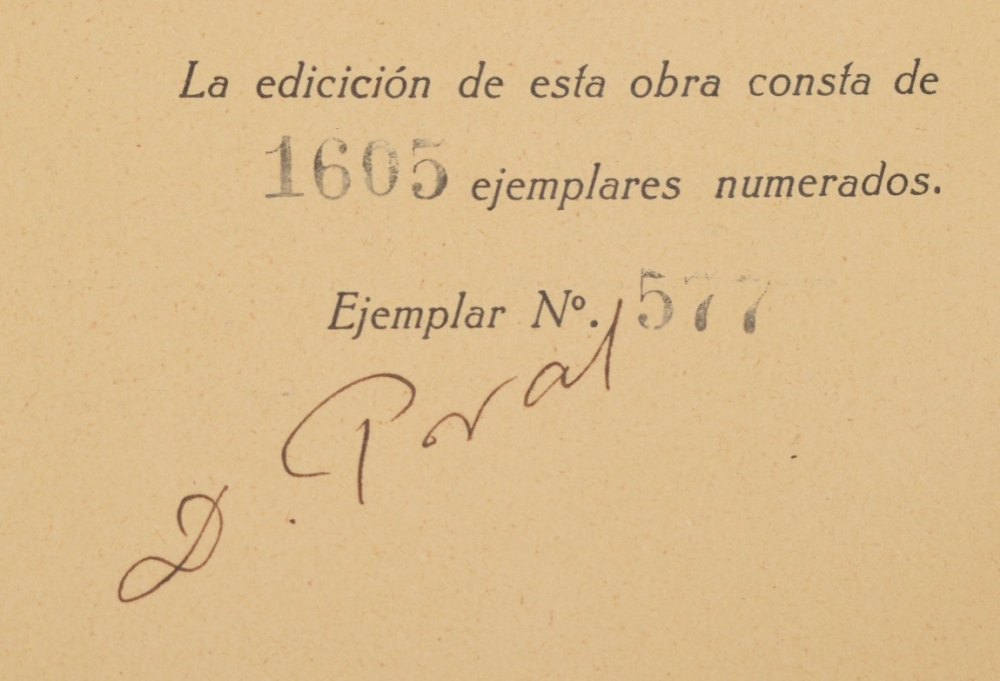 La edicición de esta obra consta de
1605 ejemplares numerados.
Ejemplar Nº. 577
D. Poral